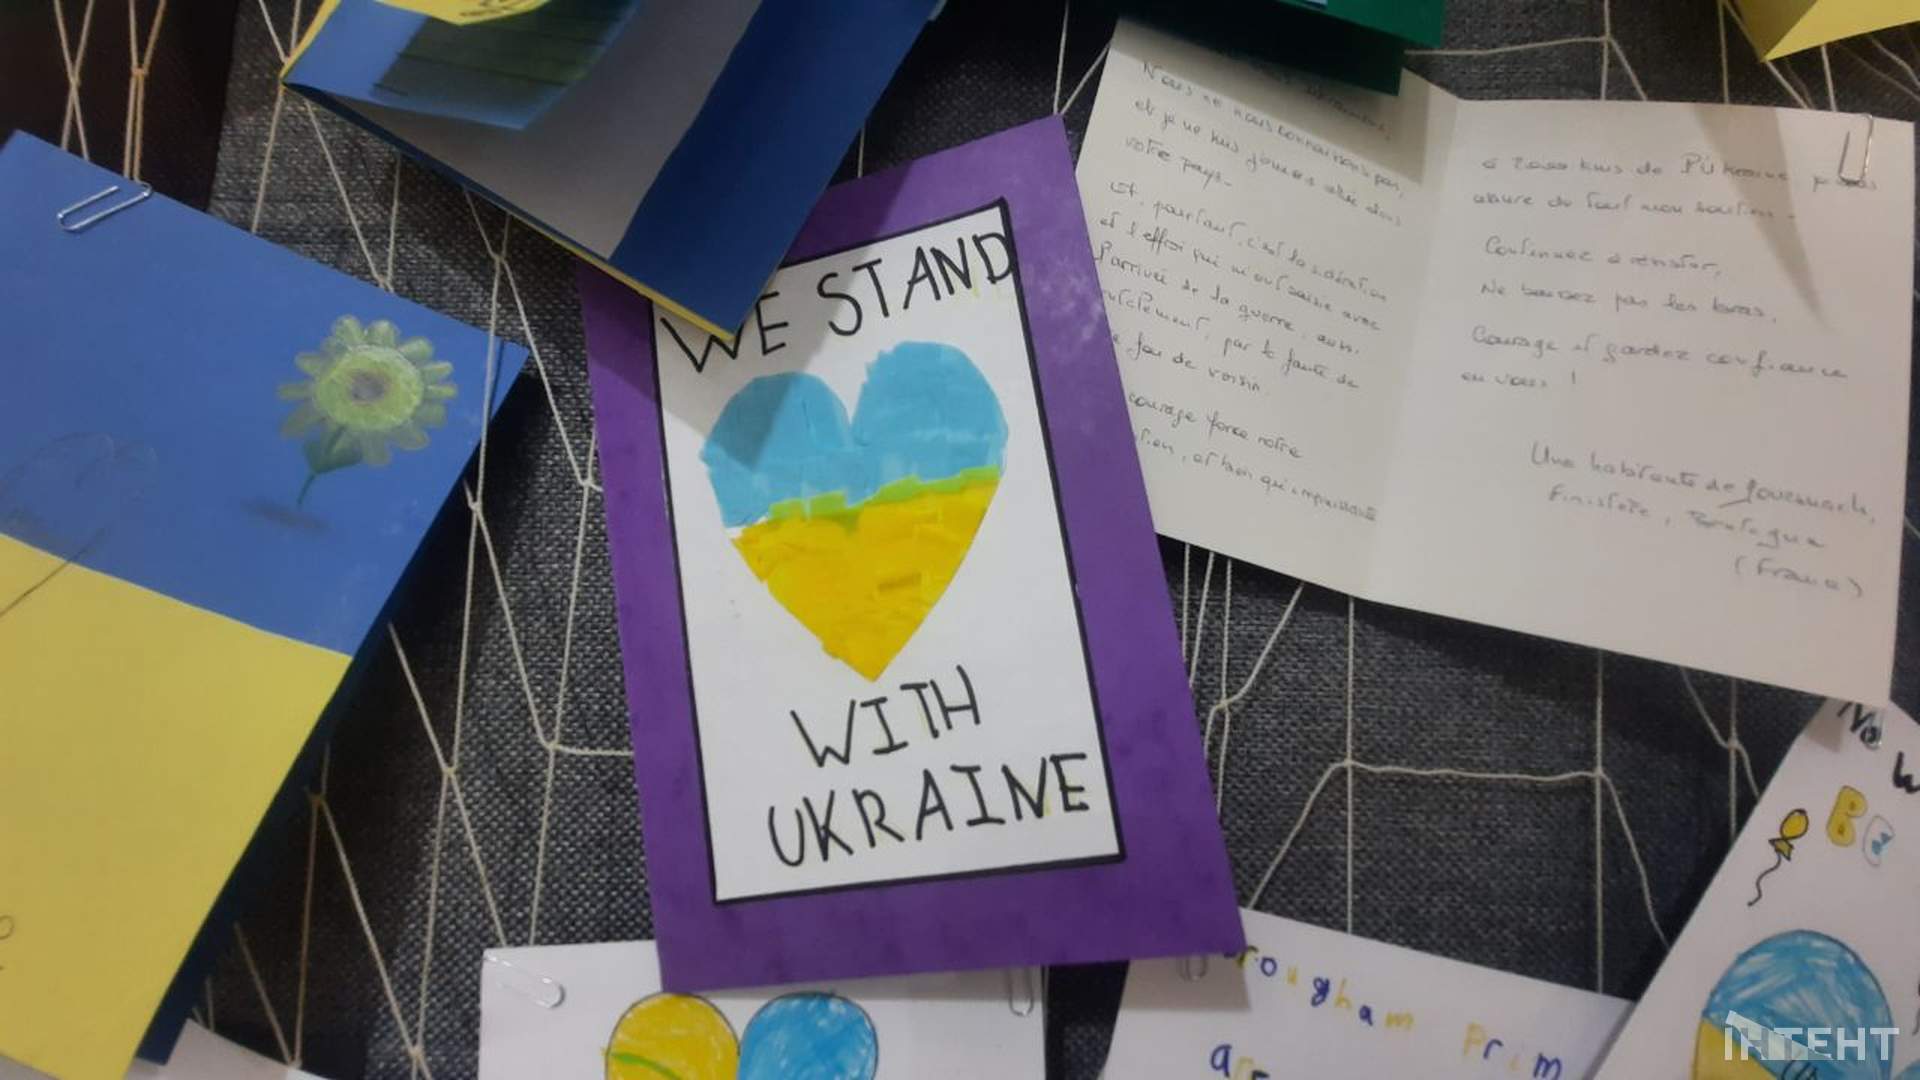 WE STAND
WITH
UKRAINE
Nous ne nous connaissons pas,
et je ne suis jamais allée dans
votre pays.
Et, pourtant, c'est la sidération
et l'effroi qui m'ont saisie avec
l'arrivée de la guerre, aussi
par la faute de
de voisin.
courage force notre
et bien qu'impuissante
à 2000 kms de l'Ukraine, je vous
assure de tout mon soutien.
Continuez à résister,
Ne baissez pas les bras,
Courage et gardez confiance
en vous !
Une habitante de
Finistère, Bretagne
(France)
No
W
Be
rougham Prim
are
ІНТЕНТ